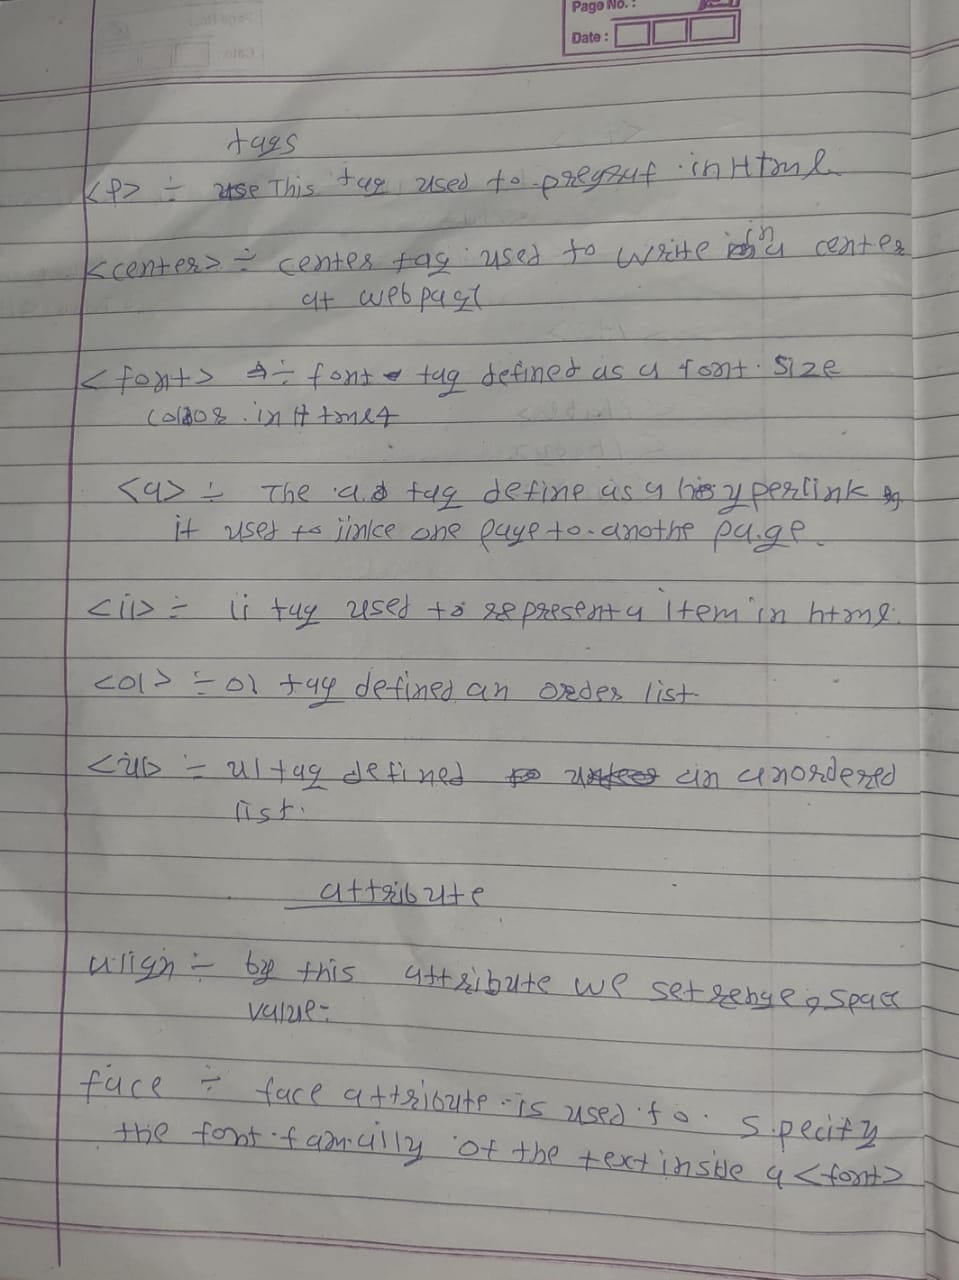 Page No. :
Date :
tags
<p> ÷ use This tag used to pregraf in Html
<center> ÷ center tag used to write in a center
at webpage
<font> ÷ font tag defined as a font size
color in Html
<a> ÷ The a tag define as a hyperlink
it used to linke one page to anothe page.
<li> ÷ li tag used to represent a item in html.
<ol> ÷ ol tag defined an order list
<ul> ÷ ul tag defined an unordered
list.
attribute
align ÷ by this attribute we set renge, space
value
face ÷ face attribute is used to specify
the font famailly of the text inside a <font>